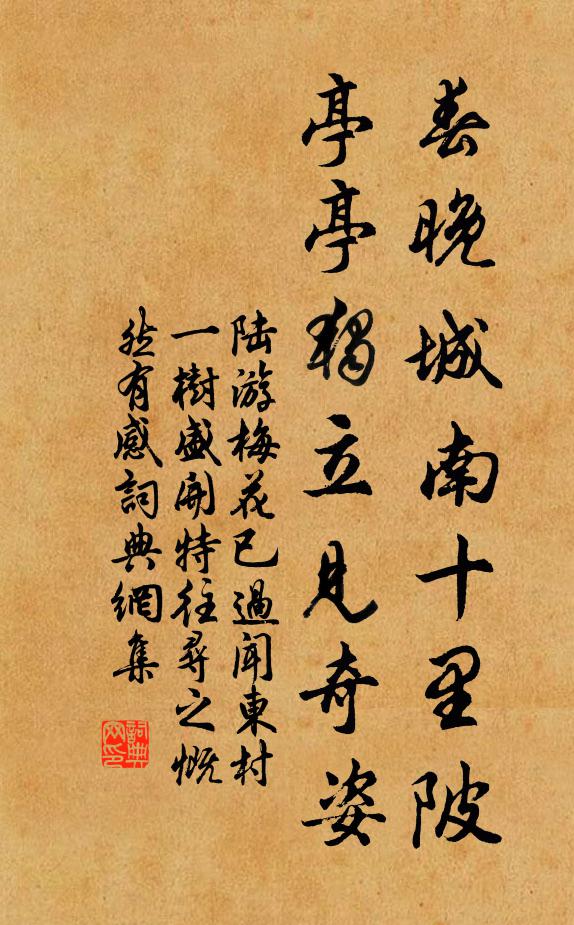 春晚城南十里陂
亭亭獨立見奇姿
陆游梅花已過聞東村
一樹盛開特往尋之慨
然有感詞典網集
詞典
网印